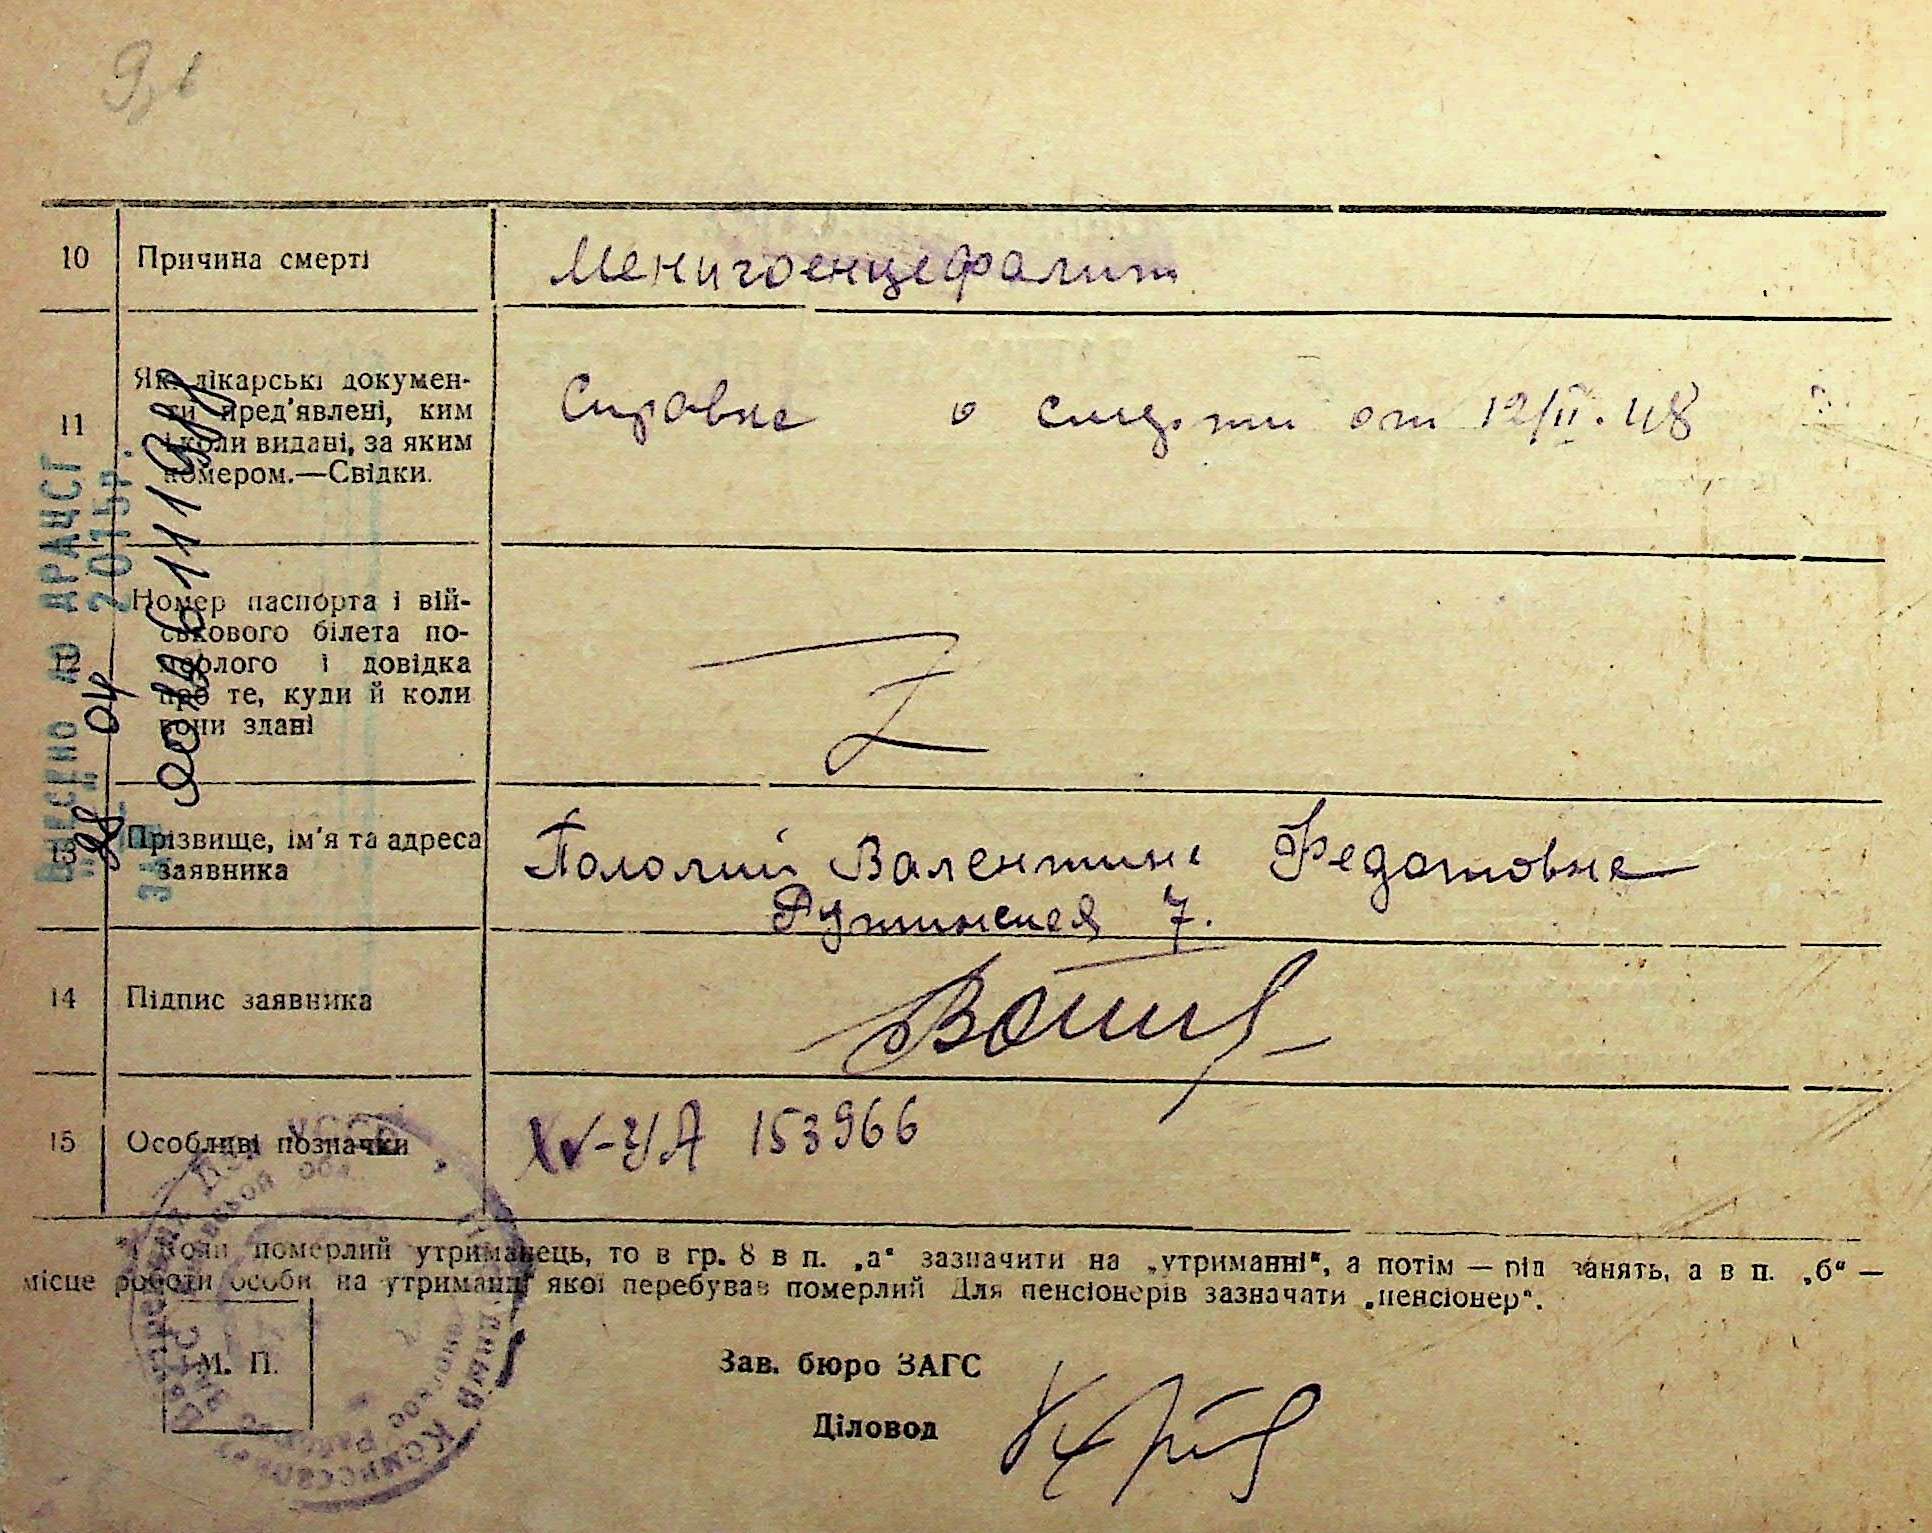 91
10 Причина смерті Менигоенцефалит
11 Які лікарські докумен-
ти пред'явлені, ким
і коли видані, за яким
номером.—Свідки.
Справке о смерти от 12/II. 48
12 Номер паспорта і вій-
ськового білета по-
мерлого і довідка
про те, куди й коли
вони здані
Z
13 Прізвище, ім'я та адреса
заявника
Пололий Валентине Федотовне
7.
14 Підпис заявника
15 Особливі позначки 153966
*) Коли померлий утриманець, то в гр. 8 в п. „а" зазначити на „утриманні", а потім — під занять, а в п. „б" —
місце роботи особи на утриманні якої перебував померлий Для пенсіонерів зазначати „пенсіонер".
М. П.
Зав. бюро ЗАГС
Діловод
ВНЕСЕНО ДО ДРАЦСГ
28 04 2015р.
ЗА №